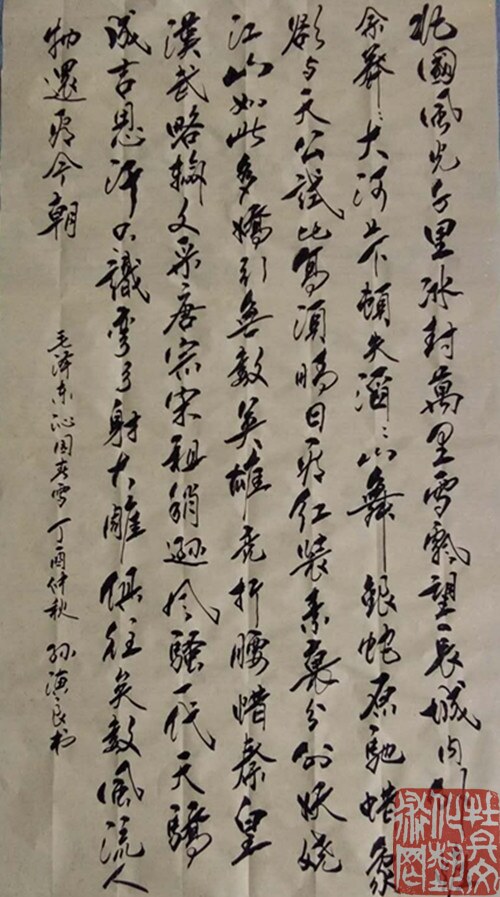 北國風光千里冰封萬里雪飄望長城内
余莽〻大河上下頓失滔〻山舞銀蛇原馳蜡象
欲与天公試比高須晴日看红装素裹分外妖娆
江山如此多嬌引無數英雄竞折腰惜秦皇
漢武略輸文采唐宗宋祖稍遜風騷一代天驕
成吉思汗只識彎弓射大雕俱往矣數風流人
物還看今朝
毛泽东沁园春雪 丁酉仲秋 孙演良书